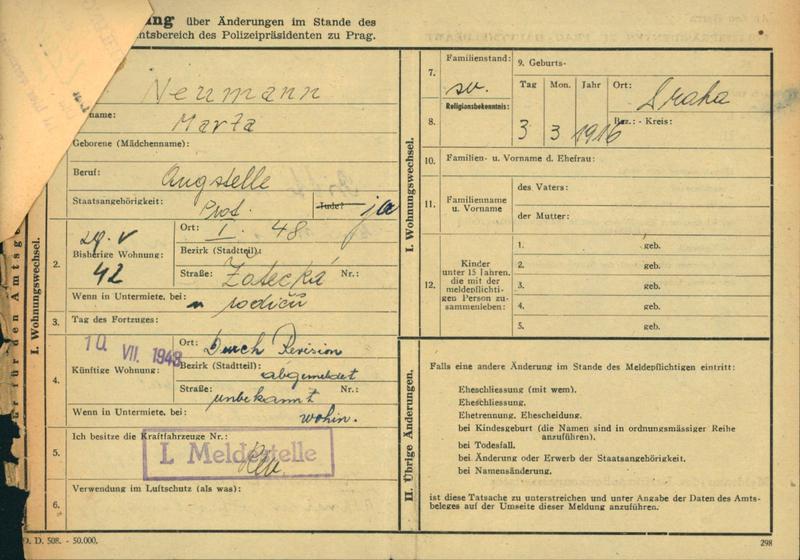 ung über Änderungen im Stande des
mtsbereich des Polizeipräsidenten zu Prag.
Neumann
name:
Marta
Geborene (Mädchenname):
Beruf: Angstelle
Staatsangehörigkeit: Prot. Jude? ja
I. Wohnungswechsel.
2. 29. V 42
Bisherige Wohnung:
Ort: I. 48
Bezirk (Stadtteil):
Straße: Žatecká Nr.:
Wenn in Untermiete, bei: u rodičů
3. Tag des Fortzuges:
10. VII. 1943
4. Künftige Wohnung:
Ort: Durch Revision
Bezirk (Stadtteil): abgemeldet
Straße: unbekannt Nr.:
Wenn in Untermiete, bei: wohin.
5. Ich besitze die Kraftfahrzeuge Nr.:
I. Meldestelle
Verwendung im Luftschutz (als was):
6.
D. 508. - 50.000.
I. Wohnungswechsel.
7. Familienstand: sv.
8. Religionsbekenntnis:
9. Geburts-
Tag Mon. Jahr Ort: Praha
3 3 1916 Bez.: - Kreis:
10. Familien- u. Vorname d. Ehefrau:
11. Familienname
u. Vorname
des Vaters:
der Mutter:
12. Kinder
unter 15 Jahren,
die mit der
meldepflichti-
gen Person zu-
sammenleben:
1. geb.
2. geb.
3. geb.
4. geb.
5. geb.
II. Übrige Änderungen.
Falls eine andere Änderung im Stande des Meldepflichtigen eintritt:
Eheschliessung (mit wem).
Eheschliessung.
Ehetrennung. Ehescheidung.
bei Kindesgeburt (die Namen sind in ordnungsmässiger Reihe
anzuführen).
bei Todesfall.
bei Änderung oder Erwerb der Staatsangehörigkeit.
bei Namensänderung.
ist diese Tatsache zu unterstreichen und unter Angabe der Daten des Amts-
beleges auf der Umseite dieser Meldung anzuführen.
298